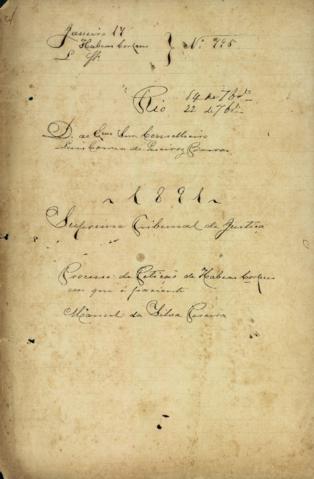 Janeiro 17
Habeas Corpus
Nº 775
Rio
D. ao Exmo Snr Conselheiro
Luiz Correa de Queiroz Barros
1891
Supremo Tribunal de Justiça
Processo de Petição de Habeas Corpus
em que é paciente
Manoel da Silva Pereira